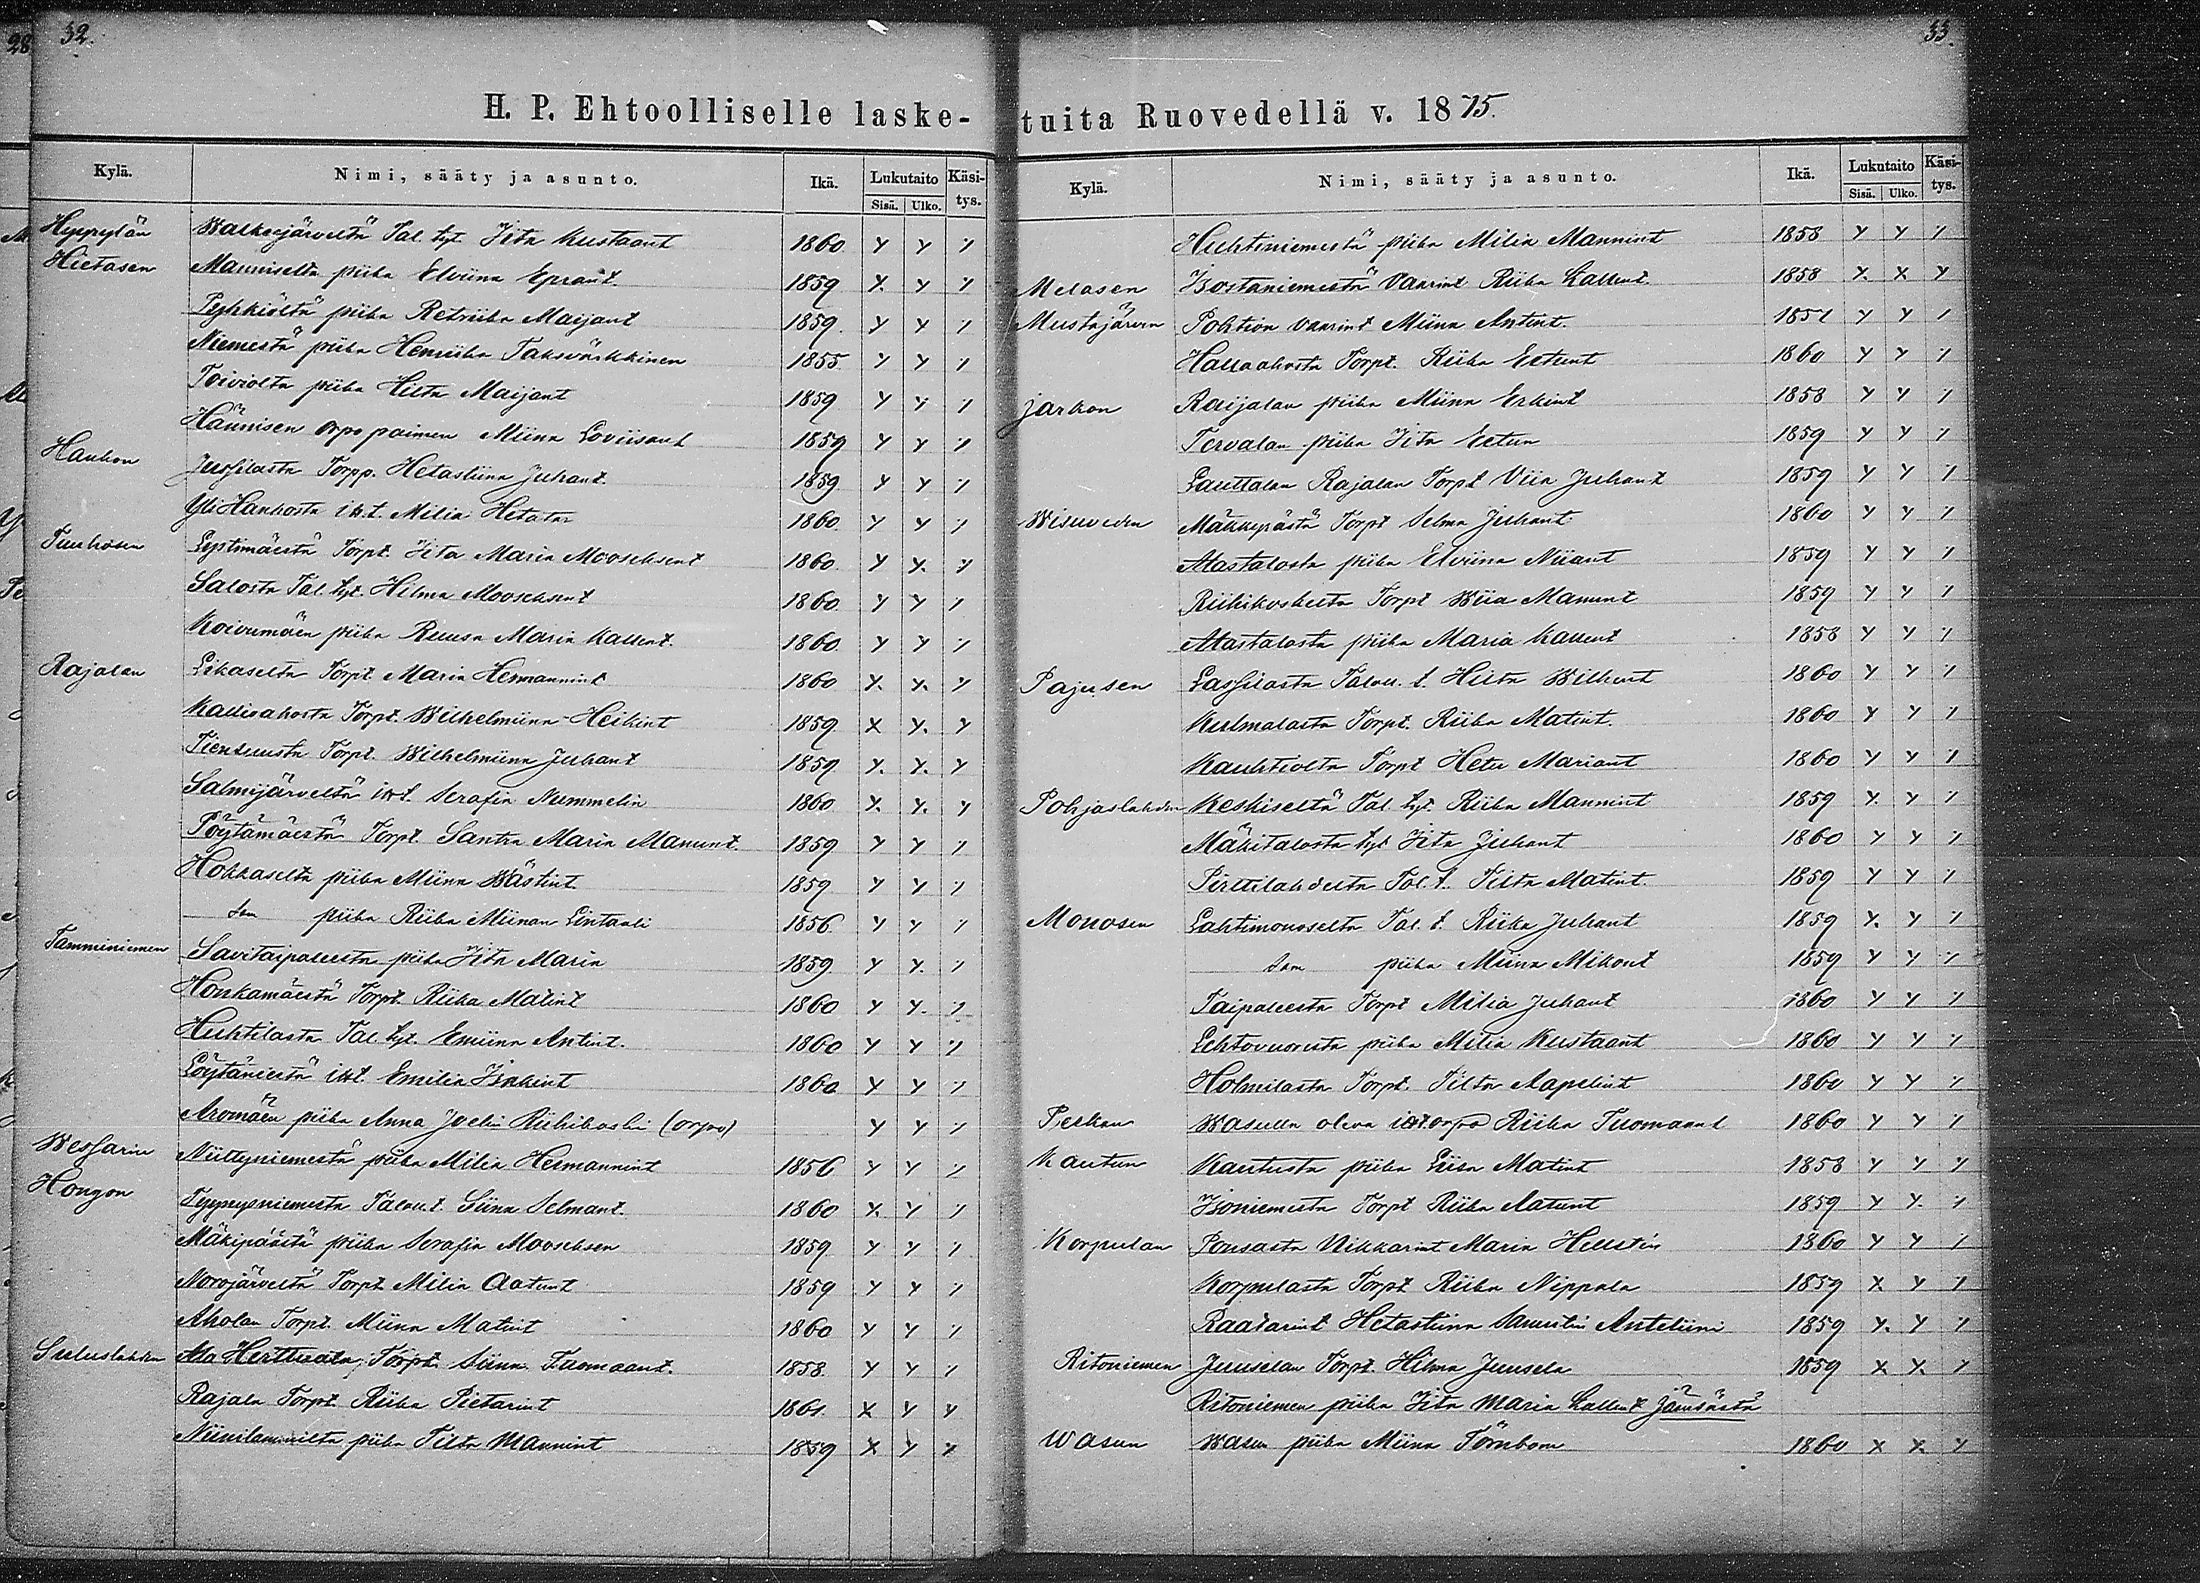 28 32.
H. P. Ehtoolliselle laske-
Kylä. Nimi, sääty ja asunto. Ikä. Lukutaito Käsi-
Sisä. Ulko. tys.
Hyppylän Walkeejärveltä Tal. tyt. Iita Kustaant 1860 y y y
Hietasen Manniselta piika Elviina Eprant. 1859 x. y y
Pyhkiöltä piika Retriika Maijant 1859. y y y
Niemestä piika Henriika Taksvärkkinen 1855 y y y
Toiviolta piika Hilta Maijant 1859 y y y
Hännisen orpo paimen Miina Loviisant 1859 y y y
Haukon Jussilasta Torpp. Hetastiina Juhant. 1859 y y y
Yli Haukosta itt. Milia Hetatar 1860. y y y
Tuuhosen Lystimäestä Torpt. Iita Maria Mooseksent 1860. y y. y
Salosta Tal. tyt. Hilma Mooseksent 1860. y y y
Koivumäen piika Ruusa Maria Kallent. 1860. y y y
Rajalan Likaselta Torpt. Maria Hermannint 1860 x. y. y
Kallioahosta Torpt. Wilhelmiina Heikint 1859 x y. y
Tiensuusta Torpt. Wilhelmiina Juhant 1859. y. y. y
Salmijärveltä itt. Serafia Nummelin 1860. x. y. y
Pöytämäestä Torpt. Santra Maria Manunt. 1859 y y y
Hokkaselta piika Miina Wästint. 1859 y y y
sam piika Riika Miinan Lintaali 1856. y y y
Tamminiemen Savitaipaleesta piika Iita Maria 1859. y y. y
Honkamäestä Torpt. Riika Matint 1860 y y. y
Huhtilasta Tal. tyt. Emiina Antint. 1860 y y y
Löytäneestä itt. Emilia Iisakint 1860 y y y
Aromäen piika Anna Joelin Riihikoski (orpo) y y y
Wessarin Niittyniemestä piika Milia Hermannint 1856 y y y
Hongon Pyypysniemestä Talout. Siina Selmant. 1860 x. y y
Mäkipäästä piika Serafia Mooseksen 1859. y y y
Norojärveltä Torpt. Milia Aatunt 1859 y y y
Aholan Torpt. Miina Matint 1860 y y y
Suluslahden Ala Herttuala, Torpt. Siina Tuomaant. 1858. y y y
Rajala Torpt. Riika Pietarint 1861 x y y
Niinilammilta piika Tilta Mannint 1859 x y x
33.
tuita Ruovedellä v. 1875.
Kylä. Nimi, sääty ja asunto. Ikä. Lukutaito Käsi-
Sisä. Ulko. tys.
Huhtiniemestä piika Milia Mannint 1858 y y y
Melasen Isostaniemestä Vaarint Riika Kallent. 1858 y. x y
Mustajärven Pohtion vaarint Miina Antint. 1851 y y y
Hallaahosta Torpt. Riika Eetunt 1860 y y y
Jarkon Raijalan piika Miina Erkint 1858 y y y
Tervalan piika Iita Eetun 1859 y y y
Lauttalan Rajalan Torpt Viia Juhant 1859 y y y
Wisuveden Mäkkipästä Torpt Selma Juhant 1860 y y y
Alastalosta piika Elviina Niiant 1859 y y y
Riihikoskesta Torpt Wiia Manunt 1859 y y y
Alastalosta piika Maria Kallent 1858 y y y
Pajusen Lassilasta Talon. t. Hilta Wilhent 1860 y y y
Kulmalasta Torpt. Riika Matint. 1860 y y y
Kauhtiolta Torpt Heta Mariant 1860 y y y
Pohjaslahden Keskiseltä Tal. tyt. Riika Mannint 1859 y. y y
Mäkitalosta tyt Iita Juhant 1860 y y y
Pirttilahdesta Tal. t. Tilta Matint. 1859 y y y
Monosen Lahtimonoselta Tal. t. Riika Juhant 1859 x. y y
sam piika Miina Mikont 1859 y y y
Taipaleesta Torpt Milia Juhant 1860 y y y
Lehtovuoresta piika Milia Kustaant 1860 y y y
Holmilasta Torpt. Tilta Aapelint 1860 y y y
Peskan Wasulla oleva itt. orpo Riika Tuomaant 1860 y y y
Kautun Kautusta piika Liisa Matint 1858 y y y
Isoniemestä Torpt Riika Aatunt 1859 y y. y
Korpulan Ponsasta Nikkarint Maria Hellstén 1860 y y y
Korpulasta Torpt Riika Nippala 1859 x y y
Raatarint Hetastiina Samulin Anteliini 1859 x. y y
Ritoniemen Juuselan Torpt. Hilma Juusela 1859 x x. y
Ritoniemen piika Iita Maria Kallent Jämsästä
Wasun Wasun piika Miina Törnbom 1860 x x. y